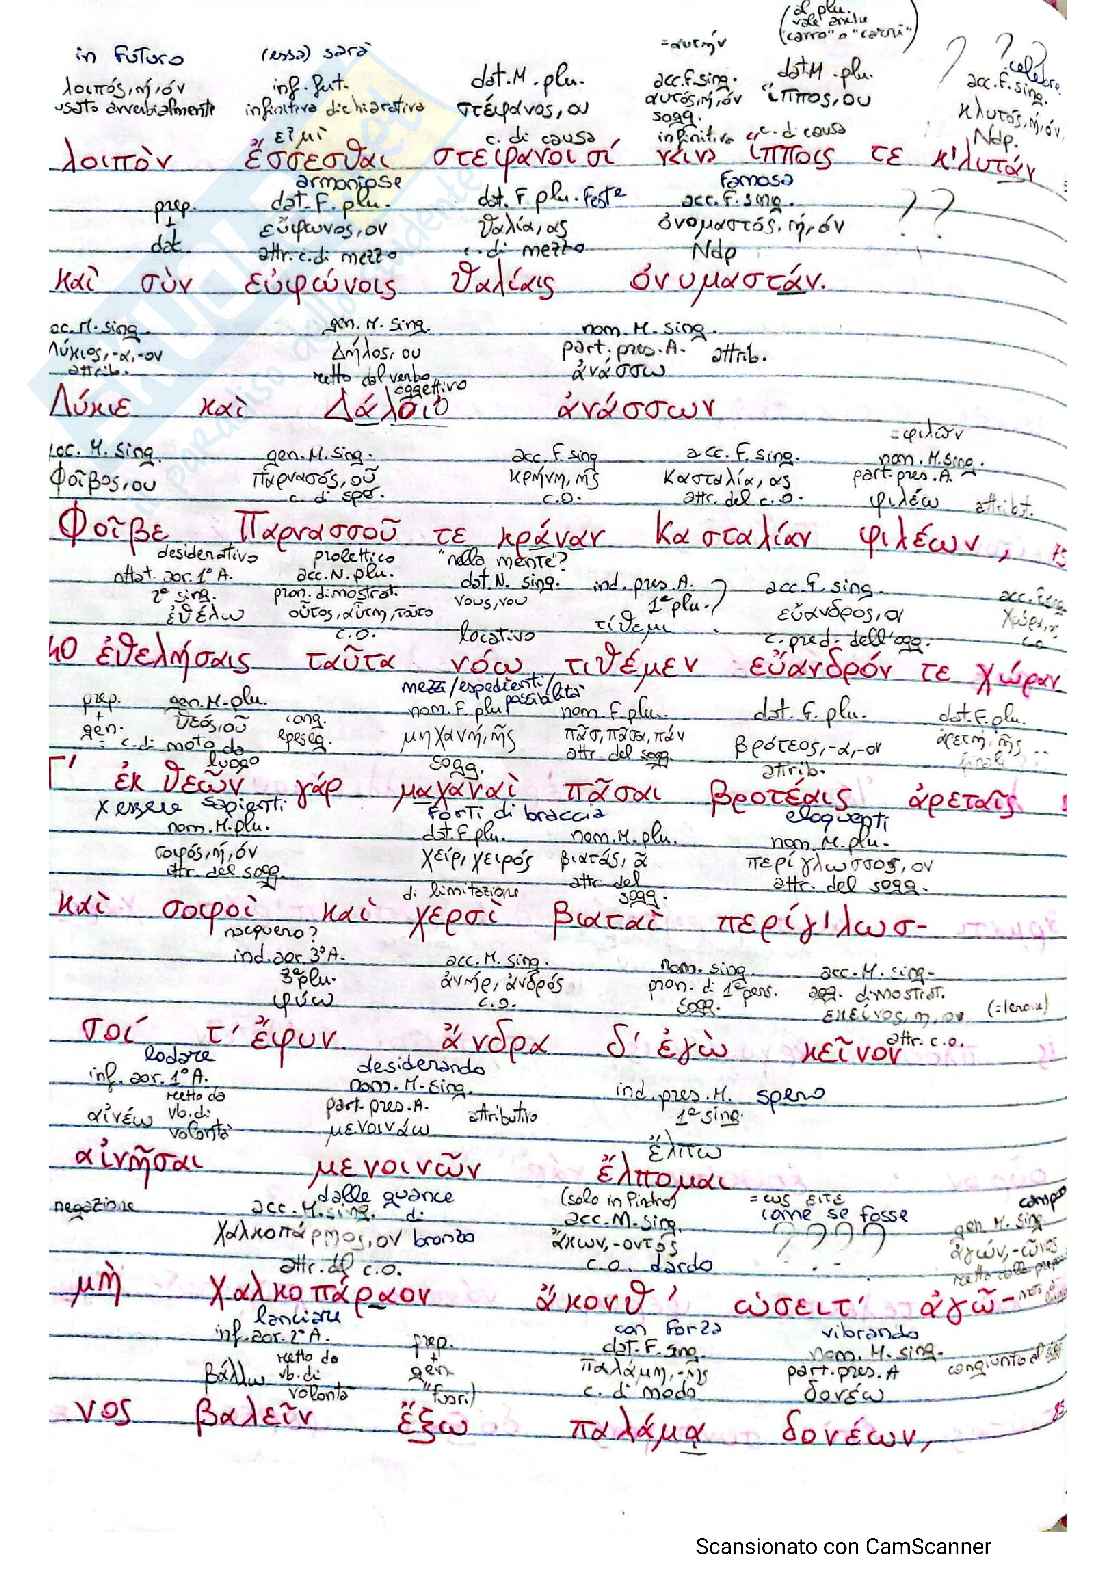 (al plu.
vale anche
("carro" o "carri")
in futuro (essa) sarà =αυτήν ? ? celebre
λοιπός, ή, όν inf. fut. dat. M. plu. acc. F. sing. dat M. plu. acc. F. sing.
usato avverbialmente infinitiva dichiarativa στέφανος, ου αυτός, ή, όν ἵππος, ου κλυτός, ή, όν
εἰμί c. di causa sogg. infinitiva c. di causa Ndp.
λοιπὸν ἔσσεσθαι στεφάνοισί νειν ἵπποις τε κλυτάν
armoniose famosa
prep. + dat. dat. F. plu. dat. F. plu. feste acc. F. sing. ? ?
εὔφωνος, ον θαλία, ας ὀνομαστός, ή, όν
attr. c. di mezzo c. di mezzo Ndp
καὶ σὺν εὐφώνοις θαλίαις ὀνυμαστάν.
acc. M. sing. gen. M. sing. nom. M. sing.
Λύκιος, -α, -ον Δῆλος, ου part. pres. A. attrib.
attrib. retto dal verbo oggettivo ἀνάσσω
Λύκιε καὶ Δάλοιο ἀνάσσων
=φιλῶν
acc. M. sing. gen. M. sing. acc. F. sing acc. F. sing. nom. M. sing.
Φοῖβος, ου Παρνασός, οῦ κρήνη, ης Κασταλία, ας part. pres. A.
c. di spec. c.o. attr. del c.o. φιλέω attribt.
Φοῖβε Παρνασσοῦ τε κράναν Κασταλίαν φιλέων,
desiderativo prolettico "nella mente"?
ottat. aor. 1° A. acc. N. plu. dat. N. sing. ind. pres. A. acc. F. sing.
2° sing. pron. dimostrat. νους, νου 1° plu. ? εὔανδρος, ον χώρα,
ἐθέλω οὗτος, αὕτη, τοῦτο τίθεμι
c.o. locativo c. pred. dell'ogg. c.o
40 ἐθελήσαις ταῦτα νόῳ τιθέμεν εὔανδρόν τε χώραν
mezzi/espedienti/possibilità
prep. + gen. gen. M. plu. nom. F. plu. nom. F. plu. dat. F. plu. dat. F. plu.
θεός, οῦ cong. epeseg. μηχανή, ῆς πᾶσ, πᾶσα, πάν βρότεος, -α, -ον ἀρετή, ῆς
: c. di moto da luogo sogg. attr. del sogg attrib.
Γ' ἐκ θεῶν γὰρ μαχαναὶ πᾶσαι βροτέαις ἀρεταῖς
x essere sapienti forti di braccia eloquenti
nom. M. plu. dat. F plu. nom. M. plu. nom. M. plu.
σοφός, ή, όν χείρ, χειρός βιατάς, ᾶ περίγλωσσος, ον
attr. del sogg. di limitazione attr. del sogg. attr. del sogg.
καὶ σοφοὶ καὶ χερσὶ βιαταὶ περίγλωσ-
nacquero?
ind. aor. 3° A. acc. M. sing. nom. sing. acc. M. sing.
3° plu. ἀνήρ, ἀνδρός pron. di 1° pers. agg. dimostrat.
φύω c.o. sogg. εκεῖνος, η, ον
attr. c.o.
σοί τ' ἔφυν ἄνδρα δ' ἐγὼ κεῖνον
lodare desiderando
inf. aor. 1° A. nom. M. sing. ind. pres. M. spero
αἰνέω retto da vb. di volontà part. pres. A. attributivo 1° sing.
μενοινάω ἔλπω
αἰνῆσαι μενοινῶν ἔλπομαι
negazione dalle guance di bronzo (solo in Pindaro) =ως ειτε campo
acc. M. sing. acc. M. sing. come se fosse gen. M. sing.
χαλκοπάρηος, ον ἄκων, -οντος ? ? ? ? ἀγών, -ῶνος
attr. del c.o. c.o. dardo
μὴ χαλκοπάραον ἄκονθ' ὡσείτ' ἀγῶ-
lanciare con forza vibrando
inf. aor. 2° A. prep. + gen dat. F. sing. nom. M. sing.
βάλλω retto da vb. di volontà "fuori" παλάμη, -ης part. pres. A
c. di modo δονέω
νος βαλεῖν ἔξω παλάμᾳ δονέων,
Scansionato con CamScanner